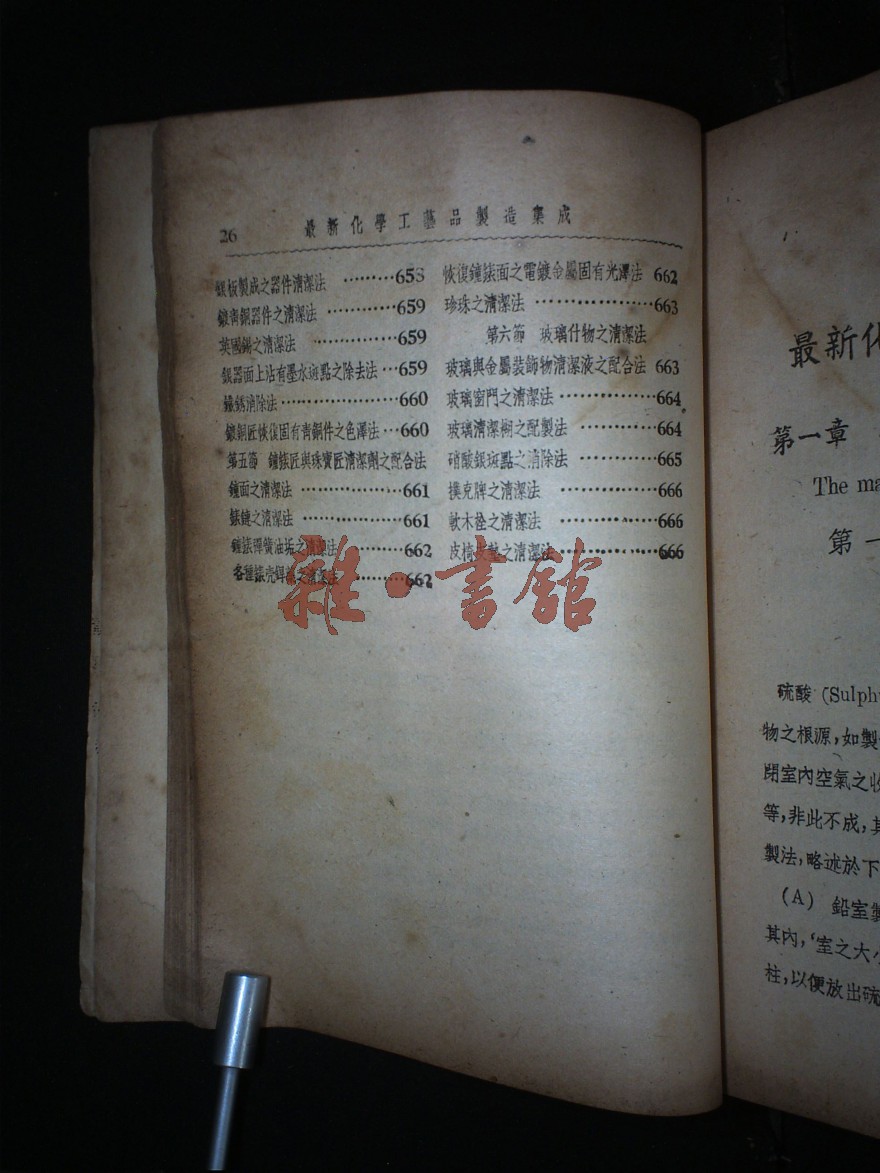 26 最新化學工藝品製造集成
銀板製成之器件清潔法 ………658
鍍靑銅器件之清潔法 ………659
英國錫之清潔法 ………659
銀器面上沾有墨水斑點之除去法…659
鐵銹消除法………………660
鍍銅匠恢復固有靑銅件之色澤法…660
第五節 鐘錶匠與珠寶匠清潔劑之配合法
鐘面之清潔法 …………661
錶鏈之清潔法 …………661
鐘錶彈簧油垢之清潔法 ………662
各種錶壳 之清潔法 ………662
恢復鐘錶面之電鍍金屬固有光澤法 662
珍珠之清潔法 ……………663
第六節 玻璃什物之清潔法
玻璃與金屬裝飾物清潔液之配合法 663
玻璃窗門之清潔法 …………664
玻璃清潔糊之配製法 …………664
硝酸銀斑點之消除法 …………665
撲克牌之清潔法 …………666
軟木栓之清潔法 …………666
皮椅皮墊之清潔法 …………666
雜·書館
最新化
第一章
The ma
第一
硫酸 (Sulph
物之根源,如製
閉室內空氣之收
等,非此不成,其
製法,略述於下
(A) 鉛室製
其內,室之大小
柱,以便放出硫